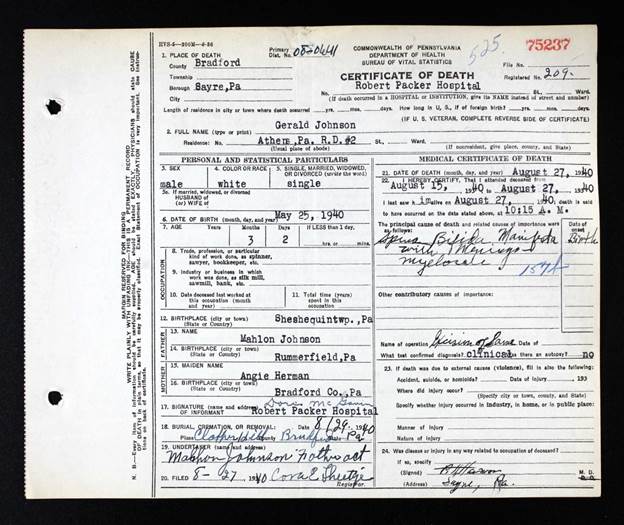 HVS-5—200M-4-36
Primary Dist. No. 08-06-41
COMMONWEALTH OF PENNSYLVANIA
DEPARTMENT OF HEALTH
BUREAU OF VITAL STATISTICS
525.
75237
File No.
Registered No. 209.
1. PLACE OF DEATH
County Bradford
Township
Borough Sayre,Pa
City
CERTIFICATE OF DEATH
No. Robert Packer Hospital St., Ward.
(If death occurred in a HOSPITAL or INSTITUTION, give its NAME instead of street and number)
Length of residence in city or town where death occurred yrs. mos. days. How long in U. S., if of foreign birth? yrs. mos. days.
(IF U. S. VETERAN, COMPLETE REVERSE SIDE OF CERTIFICATE)
2. FULL NAME (type or print) Gerald Johnson
Residence: No. Athens,Pa. R.D.#2 St., Ward.
(Usual place of abode)
(If nonresident, give place, county, and State)
PERSONAL AND STATISTICAL PARTICULARS
3. SEX male
4. COLOR OR RACE white
5. SINGLE, MARRIED, WIDOWED, OR DIVORCED (write the word) single
5a. If married, widowed, or divorced
HUSBAND of
(or) WIFE of
6. DATE OF BIRTH (month, day, and year) May 25, 1940
7. AGE Years Months 3 Days 2 If LESS than 1 day, hrs. or mins.
8. Trade, profession, or particular kind of work done, as spinner, sawyer, bookkeeper, etc.
9. Industry or business in which work was done, as silk mill, sawmill, bank, etc.
10. Date deceased last worked at this occupation (month and year)
11. Total time (years) spent in this occupation
12. BIRTHPLACE (city or town) Sheshequintwp.,Pa
(State or country)
FATHER
13. NAME Mahlon Johnson
14. BIRTHPLACE (city or town) Rummerfield,Pa
(State or country)
MOTHER
15. MAIDEN NAME Angie Herman
16. BIRTHPLACE (city or town) Bradford Co.,Pa
(State or country)
17. SIGNATURE OF INFORMANT
(Address) Robert Packer Hospital
18. BURIAL, CREMATION, OR REMOVAL: Date 8/29- 1940
Place Bradford Pa.
19. UNDERTAKER Mahlon Johnson Father act
(Address)
20. FILED 8-27 1940
Registrar.
MEDICAL CERTIFICATE OF DEATH
21. DATE OF DEATH (month, day, and year) August 27, 1940
22. I HEREBY CERTIFY, That I attended deceased from
August 15, 1940 to August 27, 1940
I last saw him alive on August 27, 1940 death is said
to have occurred on the date stated above, at 10:15 A. M.
The principal cause of death and related causes of importance were as follows:
Spina Bifida Manifesta
with Meningo
myelocele
157A
Date of onset
Birth
Other contributory causes of importance:
Name of operation Excision of Same Date of
What test confirmed diagnosis? clinical Was there an autopsy? no
23. If death was due to external causes (violence), fill in also the following:
Accident, suicide, or homicide? Date of injury 193
Where did injury occur?
(Specify city or town, county, and State)
Specify whether injury occurred in industry, in home, or in public place:
Manner of injury
Nature of injury
24. Was disease or injury in any way related to occupation of deceased?
If so, specify
(Signed) M. D.
(Address) Sayre, Pa.
MARGIN RESERVED FOR BINDING
WRITE PLAINLY WITH UNFADING INK—THIS IS A PERMANENT RECORD